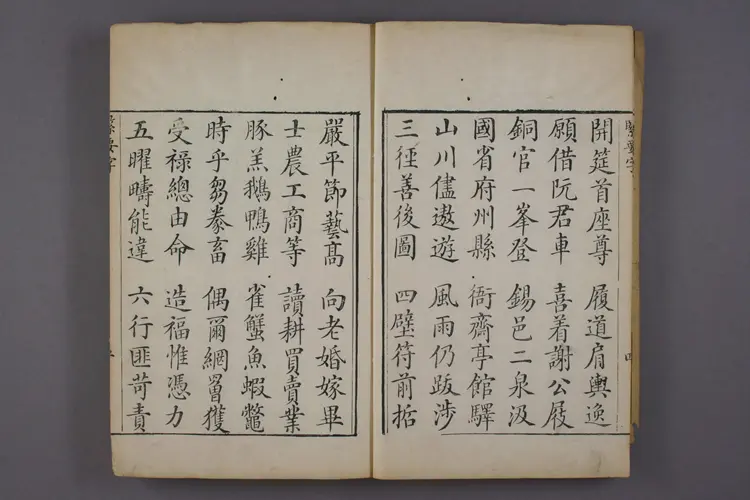 開筵首座尊 履道肩輿逸
願借阮君車 喜着謝公屐
銅官一峯登 錫邑二泉汲
國省府州縣 衙齋亭館驛
山川儘遨遊 風雨仍跋涉
三徑善後圖 四壁符前拓
嚴平節藝高 向老婚嫁畢
士農工商等 讀耕買賣業
豚羔鵝鴨雞 雀蟹魚蝦鼈
時乎芻豢畜 偶爾網罟獲
受祿總由命 造福惟憑力
五曜疇能違 六行匪苛責